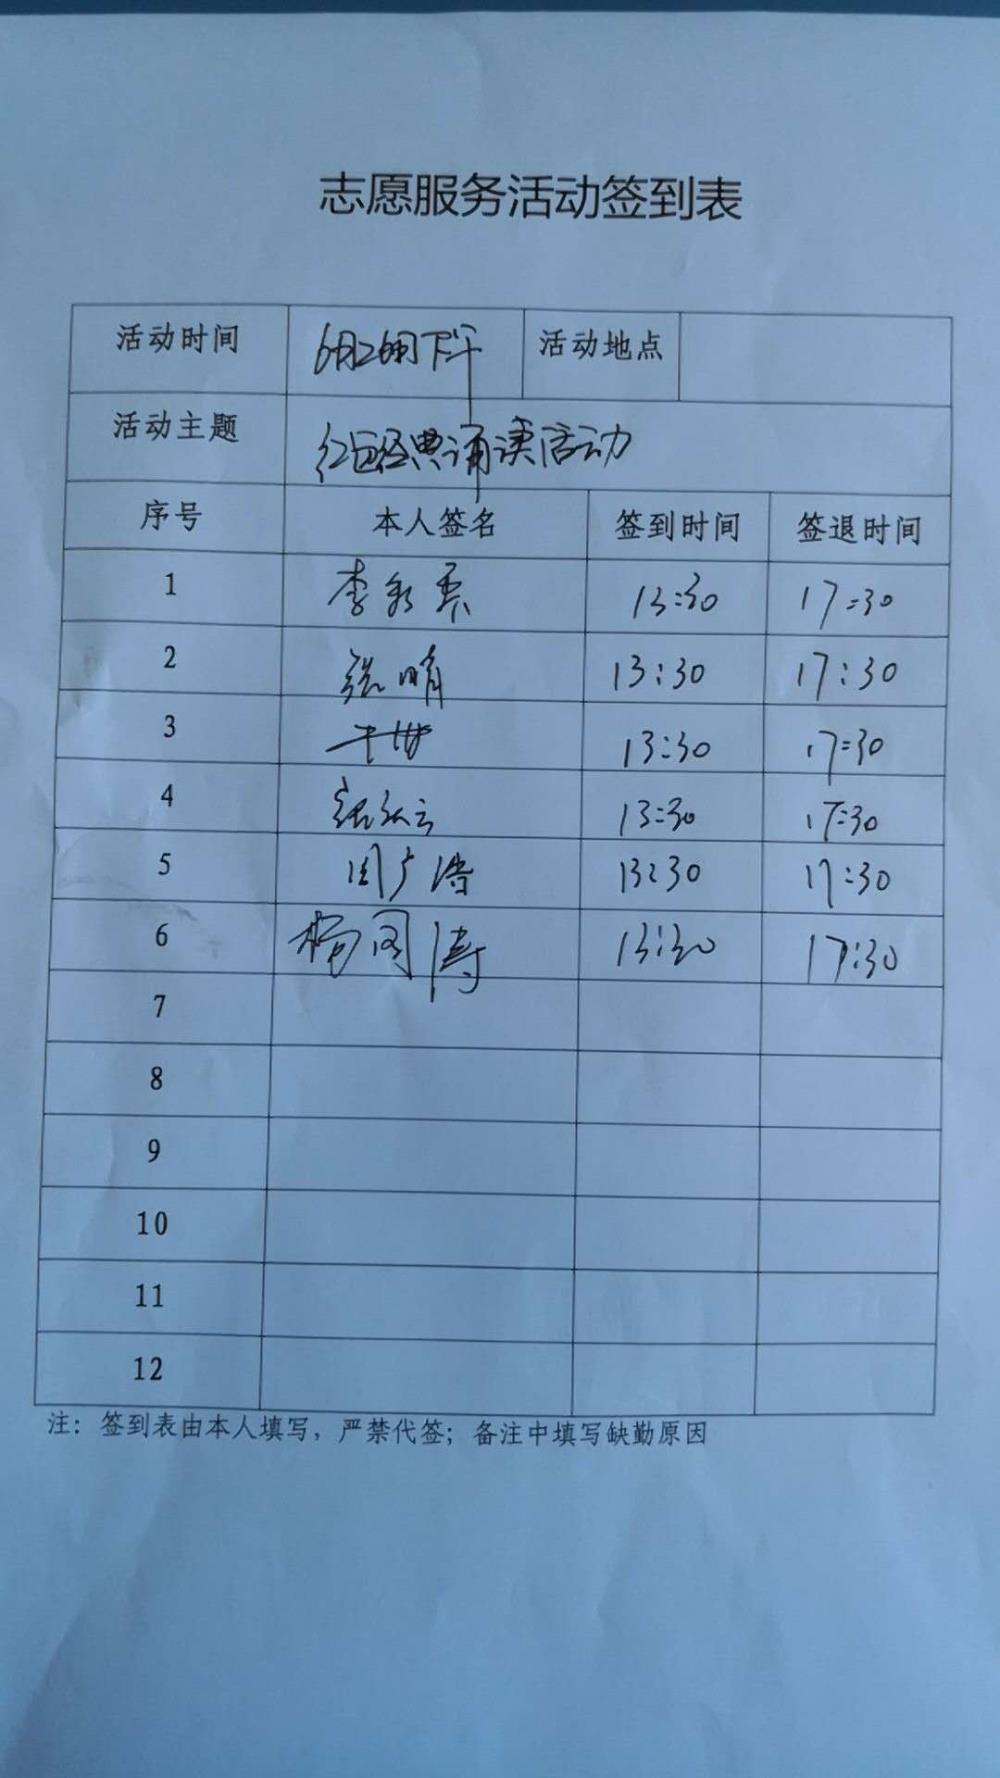 志愿服务活动签到表
活动时间 6月26日下午 活动地点
活动主题 红色经典诵读活动
序号 本人签名 签到时间 签退时间
1 李 13:30 17:30
2 张晴 13:30 17:30
3 13:30 17:30
4 13:30 17:30
5 周广浩 13:30 17:30
6 杨国涛 13:30 17:30
7
8
9
10
11
12
注：签到表由本人填写，严禁代签；备注中填写缺勤原因